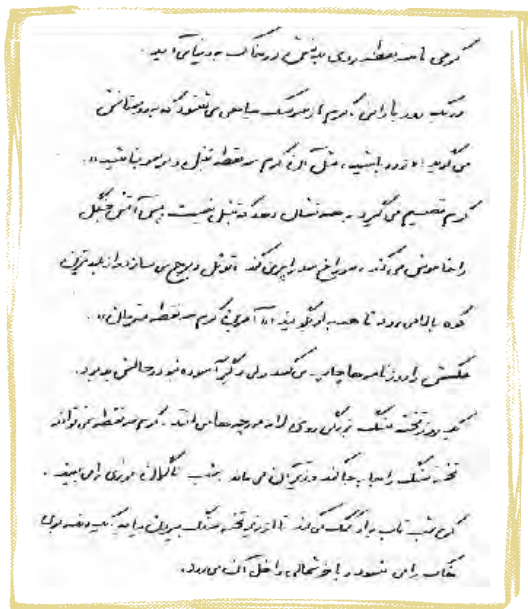 کرمی با سه نقطه روی بدنش در خاک به دنیا می آید.
در یک روز بارانی، کرم از خرمگس سیاهی می شنود که به دوستانش
می گوید: «زود باشید، مثل این کرم سه نقطه تنبل و بی سروپا نباشید».
کرم تصمیم می گیرد به همه نشان دهد که تنبل نیست. پس آتش جنگل
را خاموش می کند، سوراخ سد را پر می کند، تونل و برج می سازد و از بلندترین
کوه بالا می رود تا همه به او بگویند: «آفرین کرم سه نقطه قهرمان».
عکسش را روزنامه ها چاپ می کنند ولی دیگر آسوده نبود و حالش بد بود.
یک روز تخته سنگ بزرگی روی لانه مورچه ها می افتد. کرم سه نقطه نمی تواند
تخته سنگ را جا به جا کند و زیر آن می ماند. شب ناگهان نوری را می بیند.
کرم شب تاب به او کمک می کند تا از زیر تخته سنگ بیرون بیاید. یک دفعه بوی
خاک را می شنود و با خوشحالی داخل آن می رود.